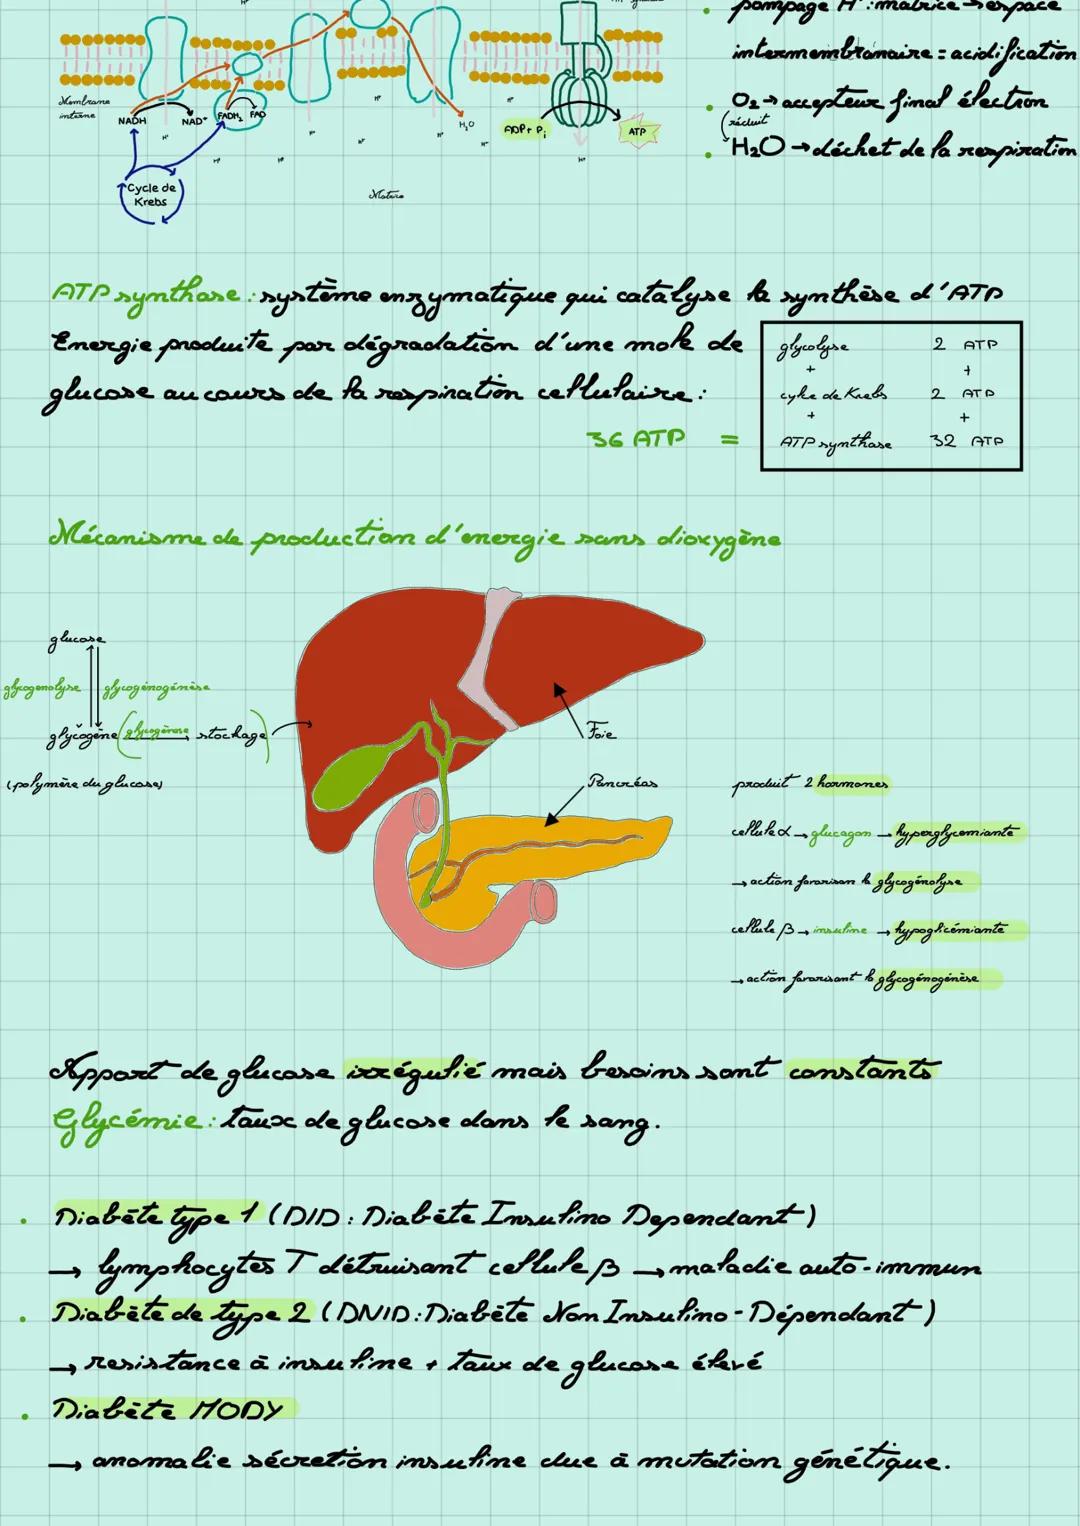 pompage H⁺ : matrice → espace
intermembranaire = acidification
O₂ → accepteur final électron
(réduit
H₂O → déchet de la respiration
Membrane
interne
NADH
NAD⁺
FADH₂
FAD
H⁺
H₂O
ADP + Pi
ATP
Cycle de
Krebs
ATP synthase : système enzymatique qui catalyse la synthèse d'ATP
Energie produite par dégradation d'une mole de
glucose au cours de la respiration cellulaire :
36 ATP =
glycolyse 2 ATP
+ +
cyke de Krebs 2 ATP
+ +
ATP synthase 32 ATP
Mécanisme de production d'energie sans dioxygène
glucose
glycogenolyse glycogénogénèse
glycogène (glycogénose → stockage)
(polymère du glucose)
Foie
Pancréas
produit 2 hormones
cellule α → glucagon → hyperglycemiante
→ action favorisan la glycogénolyse
cellule β → insuline → hypoglicémiante
→ action favorisant la glycogénogénèse
Apport de glucose irrégulié mais besoins sont constants
Glycémie : taux de glucose dans le sang.
Diabète type 1 (DID : Diabète Insulino Dependant)
→ lymphocytes T détruisant cellule β → maladie auto-immun
Diabète de type 2 (DNID : Diabète Non Insulino-Dépendant)
→ resistance à insuline + taux de glucose élevé
Diabète MODY
→ anomalie sécretion insuline due à mutation génétique.